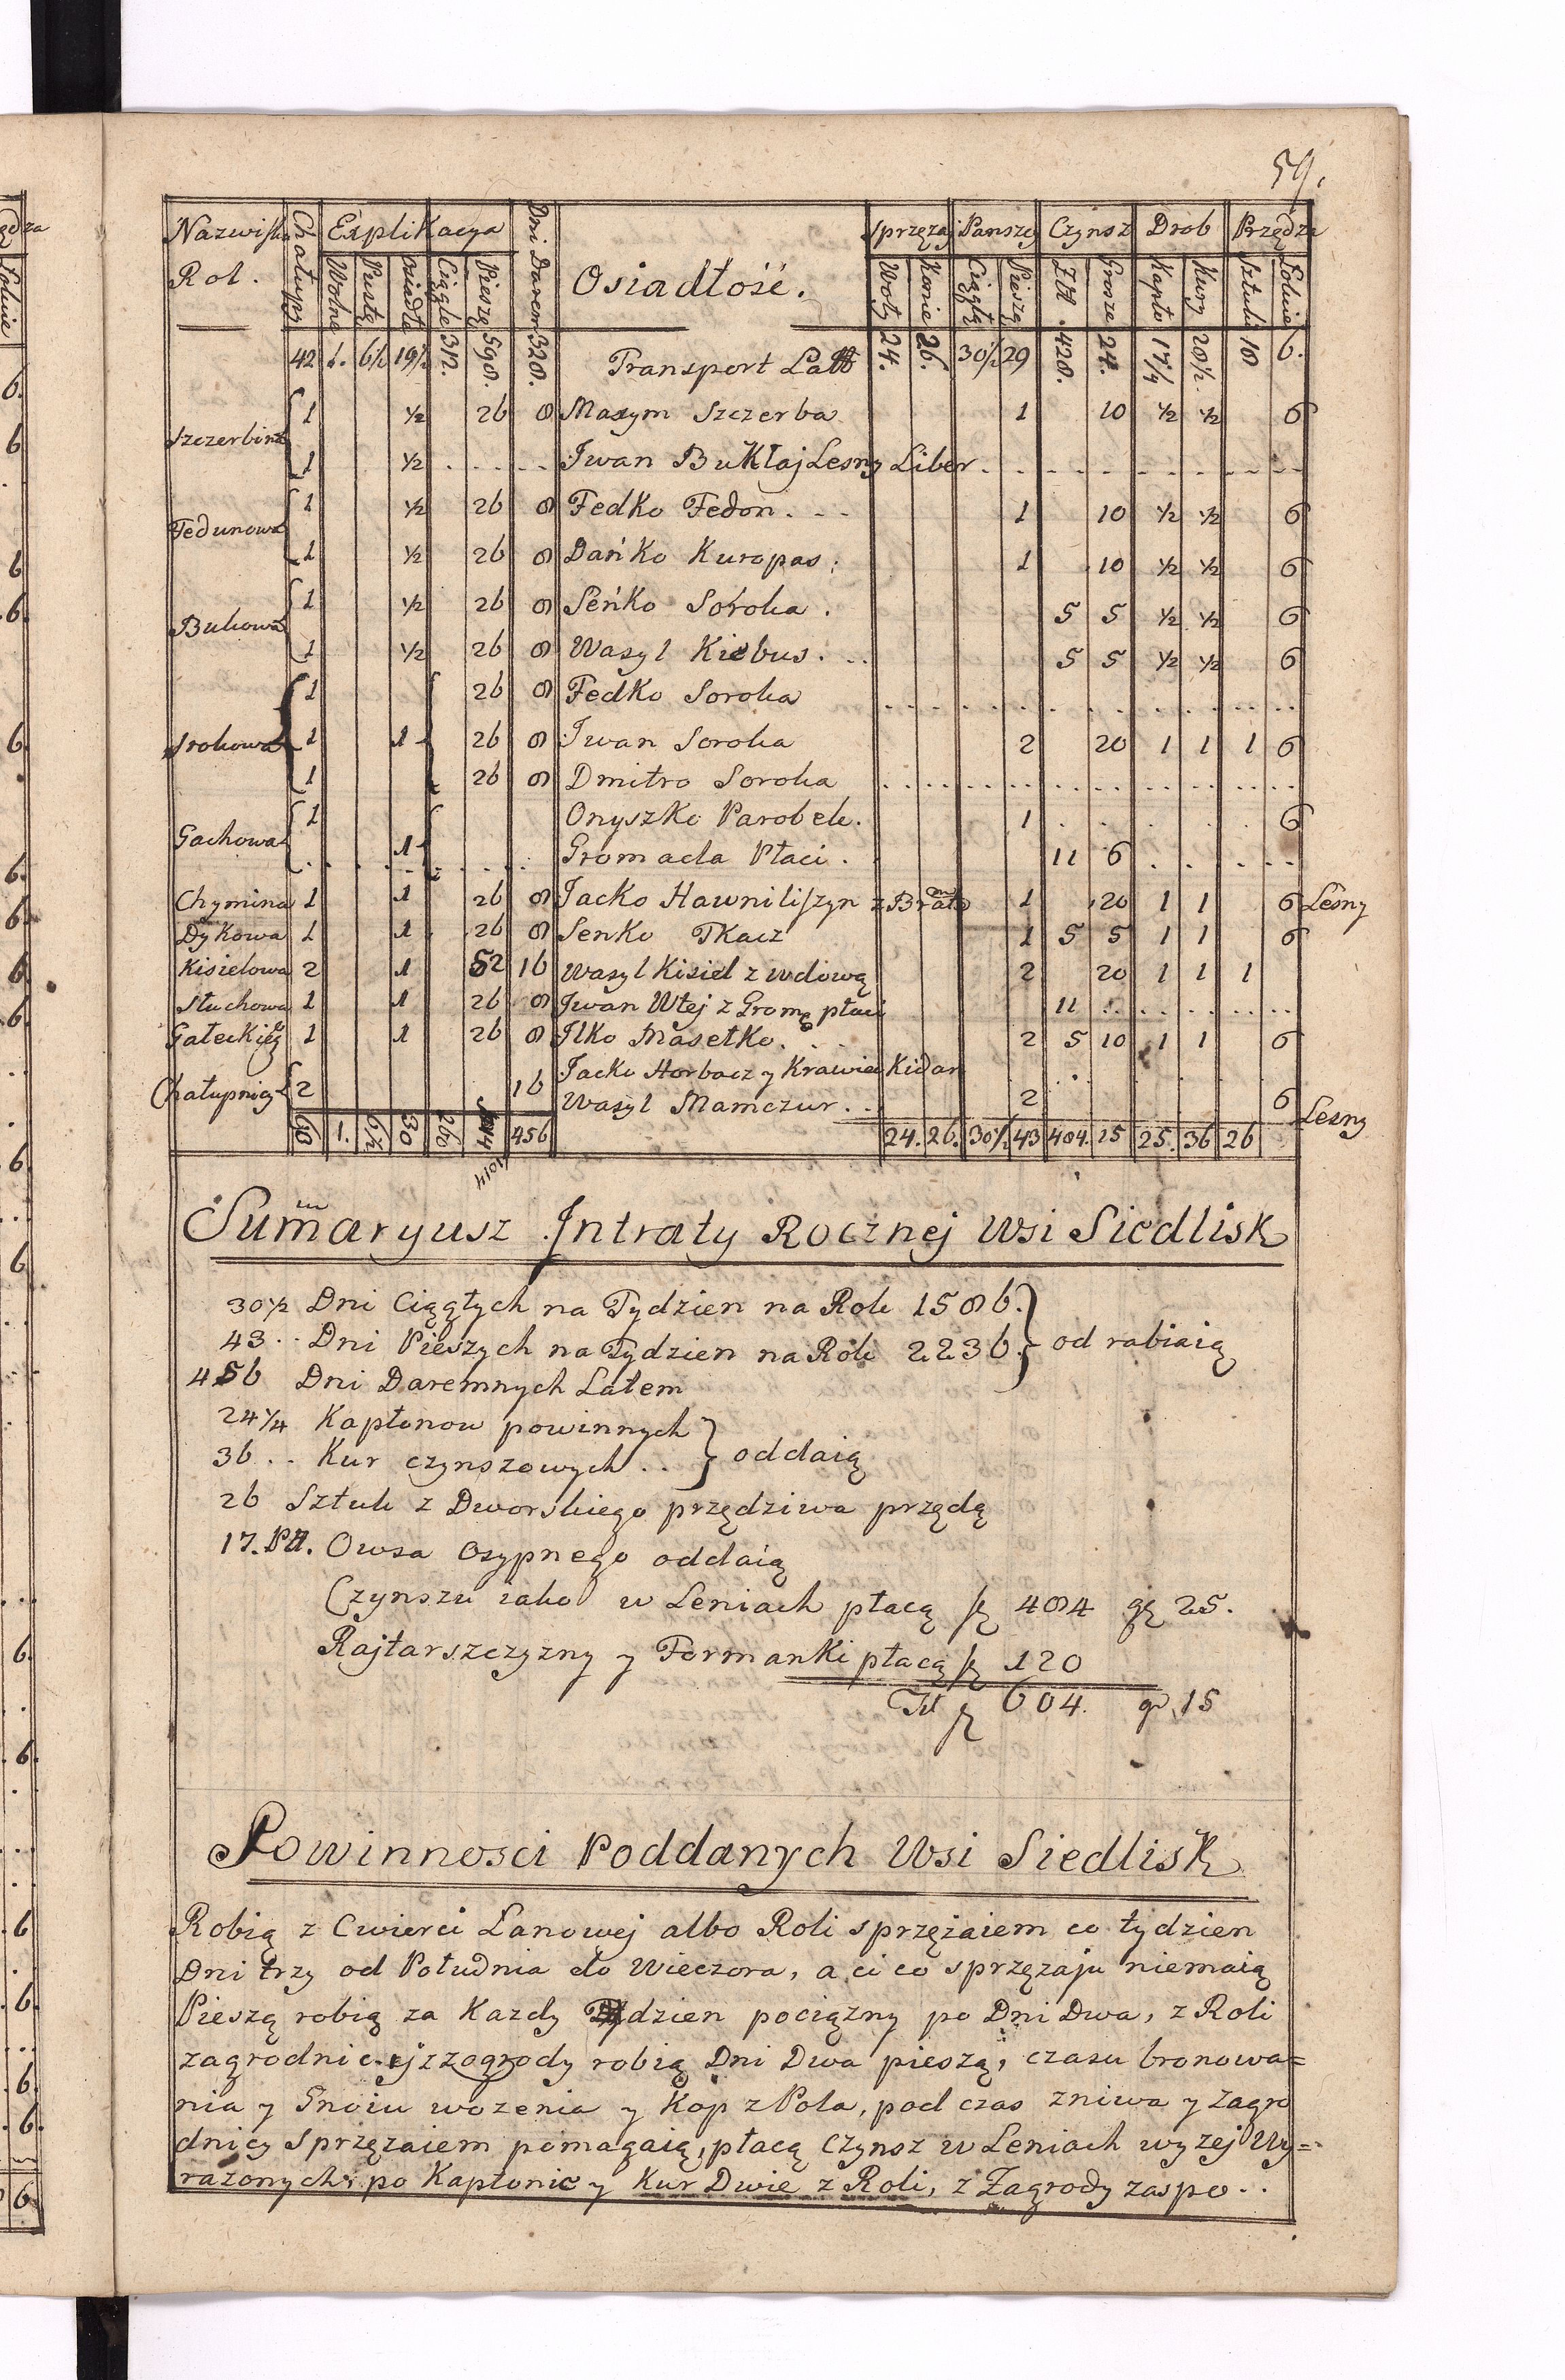 59.
Nazwiska Chałupy Explikacya Dni Darem Osiadłość. Sprzęzaj Panszcz Czynsz Drob Przędza
Rol. Wolne Puste Osiadłe Ciągłe Piesze Woły Konie Ciągła Piesza Zł. Grosze Kapło Kury Sztuk Łokcie
42 1. 6½ 19½ 312. 598. 328. Transport Latt 24. 26. 30½ 29 428. 24. 17¼ 28½. 18 6.
Szczerbina 1 ½ 26 8 Maxym Szczerba 1 10 ½ ½ 6
1 ½ Jwan Bukłaj Lesny Liber
Fedunowa 1 ½ 26 8 Fedko Fedon 1 10 ½ ½ 6
1 ½ 26 8 Dańko Kuropas 1 10 ½ ½ 6
Bukowa 1 ½ 26 8 Seńko Soroka 5 5 ½ ½ 6
1 ½ 26 8 Wasyl Kiebus 5 5 ½ ½ 6
1 26 8 Fedko Soroka
Srokowa 1 1 26 8 Jwan Soroka 2 20 1 1 1 6
1 26 8 Dmitro Soroka
Gachowa 1 Onyszko Parobek. 1 6
1 Gromada Płaci. 11 6
Chymina 1 1 26 8 Jacko Hawniliszyn z Bratem 1 20 1 1 6 Lesny
Dykowa 1 1 26 8 Senko Tkacz 1 5 5 1 1 6
Kisielowa 2 1 52 16 Wasyl Kisiel z wdową 2 20 1 1 1
Słuchowa 1 1 26 8 Jwan Wtej z Grom płaci 11
Gałeckieg 1 1 26 8 Jlko Masełko. 2 5 10 1 1 6
Chałupnicy 2 16 Jacko Horbacz y Krawiec Kidar
Wasyl Mamczur 2 6 Lesny
60 1. 6½ 30 260 1014 456 24. 26. 30½ 43 484. 15 25. 36 26
1014
Summaryusz Jntraty Rocznej Wsi Siedlisk
30½ Dni Ciągłych na Tydzien na Rok 1586.
43 .. Dni Pieszych na Tydzien na Rok 2236. od rabiaią
456 Dni Daremnych Latem
24¼ Kapłonow powinnych
36 .. Kur czynszowych .. oddaią
26 Sztuk z Dworskiego przędziwa przędą
17. Pł. Owsa Osypnego oddaią
Czynszu iako w Leniach płacą fł 484 gr 25.
Rajtarszczyzny y Formanki płacą fł 120
Tt fł 604. gr 15
Powinnosci Poddanych Wsi Siedlisk
Robią z Cwierci Łanowej albo Roli sprzężaiem co tydzien
Dni trzy od Południa do Wieczora, a ci co sprzęzaju niemaią
Pieszą robią za Kazdy Tydzien pociązny po Dni Dwa, z Roli
zagrodniczej z zogrody robią Dni Dwa pieszą, czasu bronowa=
nia y Gnoiu wozenia y Kop z Pola, pod czas zniwa y Zagro
dnicy Sprzęzaiem pomagaią, płacą Czynsz w Leniach wyzej Wy=
razonych: po Kapłonie y Kur Dwie z Roli, z Zagrody zas po ..